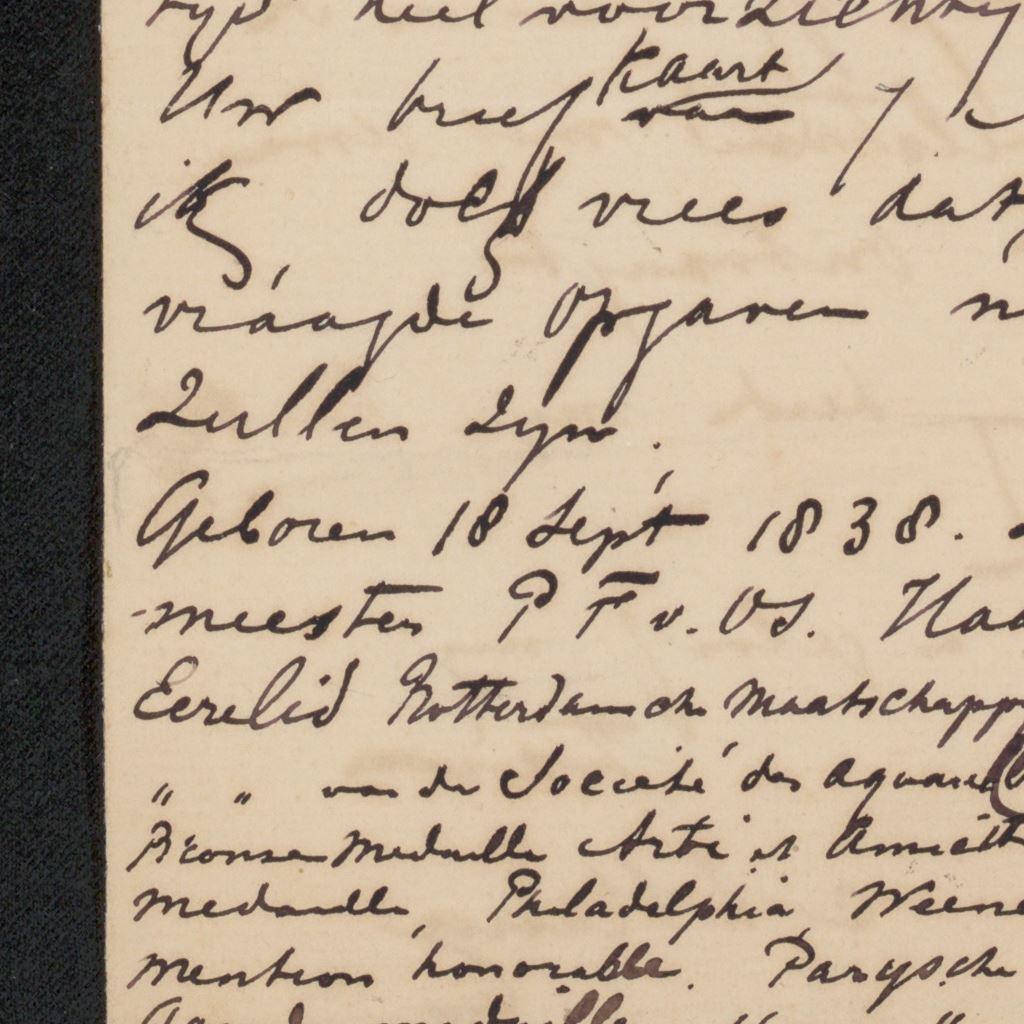 tyd heel voorzichtig
Uw brief kaart van 7
ik doch vrees dat
vráagde opgaven
Zullen zyn.
Geboren 18 Sept 1838.
meester P F v. Os. Haa
Eerelid Rotterdamsche Maatschapp
" " van der Societé des Aquarell
Bronse Medaille Arti et Amicit
medaille, Philadelphia Weene
mention honorable. Parysche
medaille " "